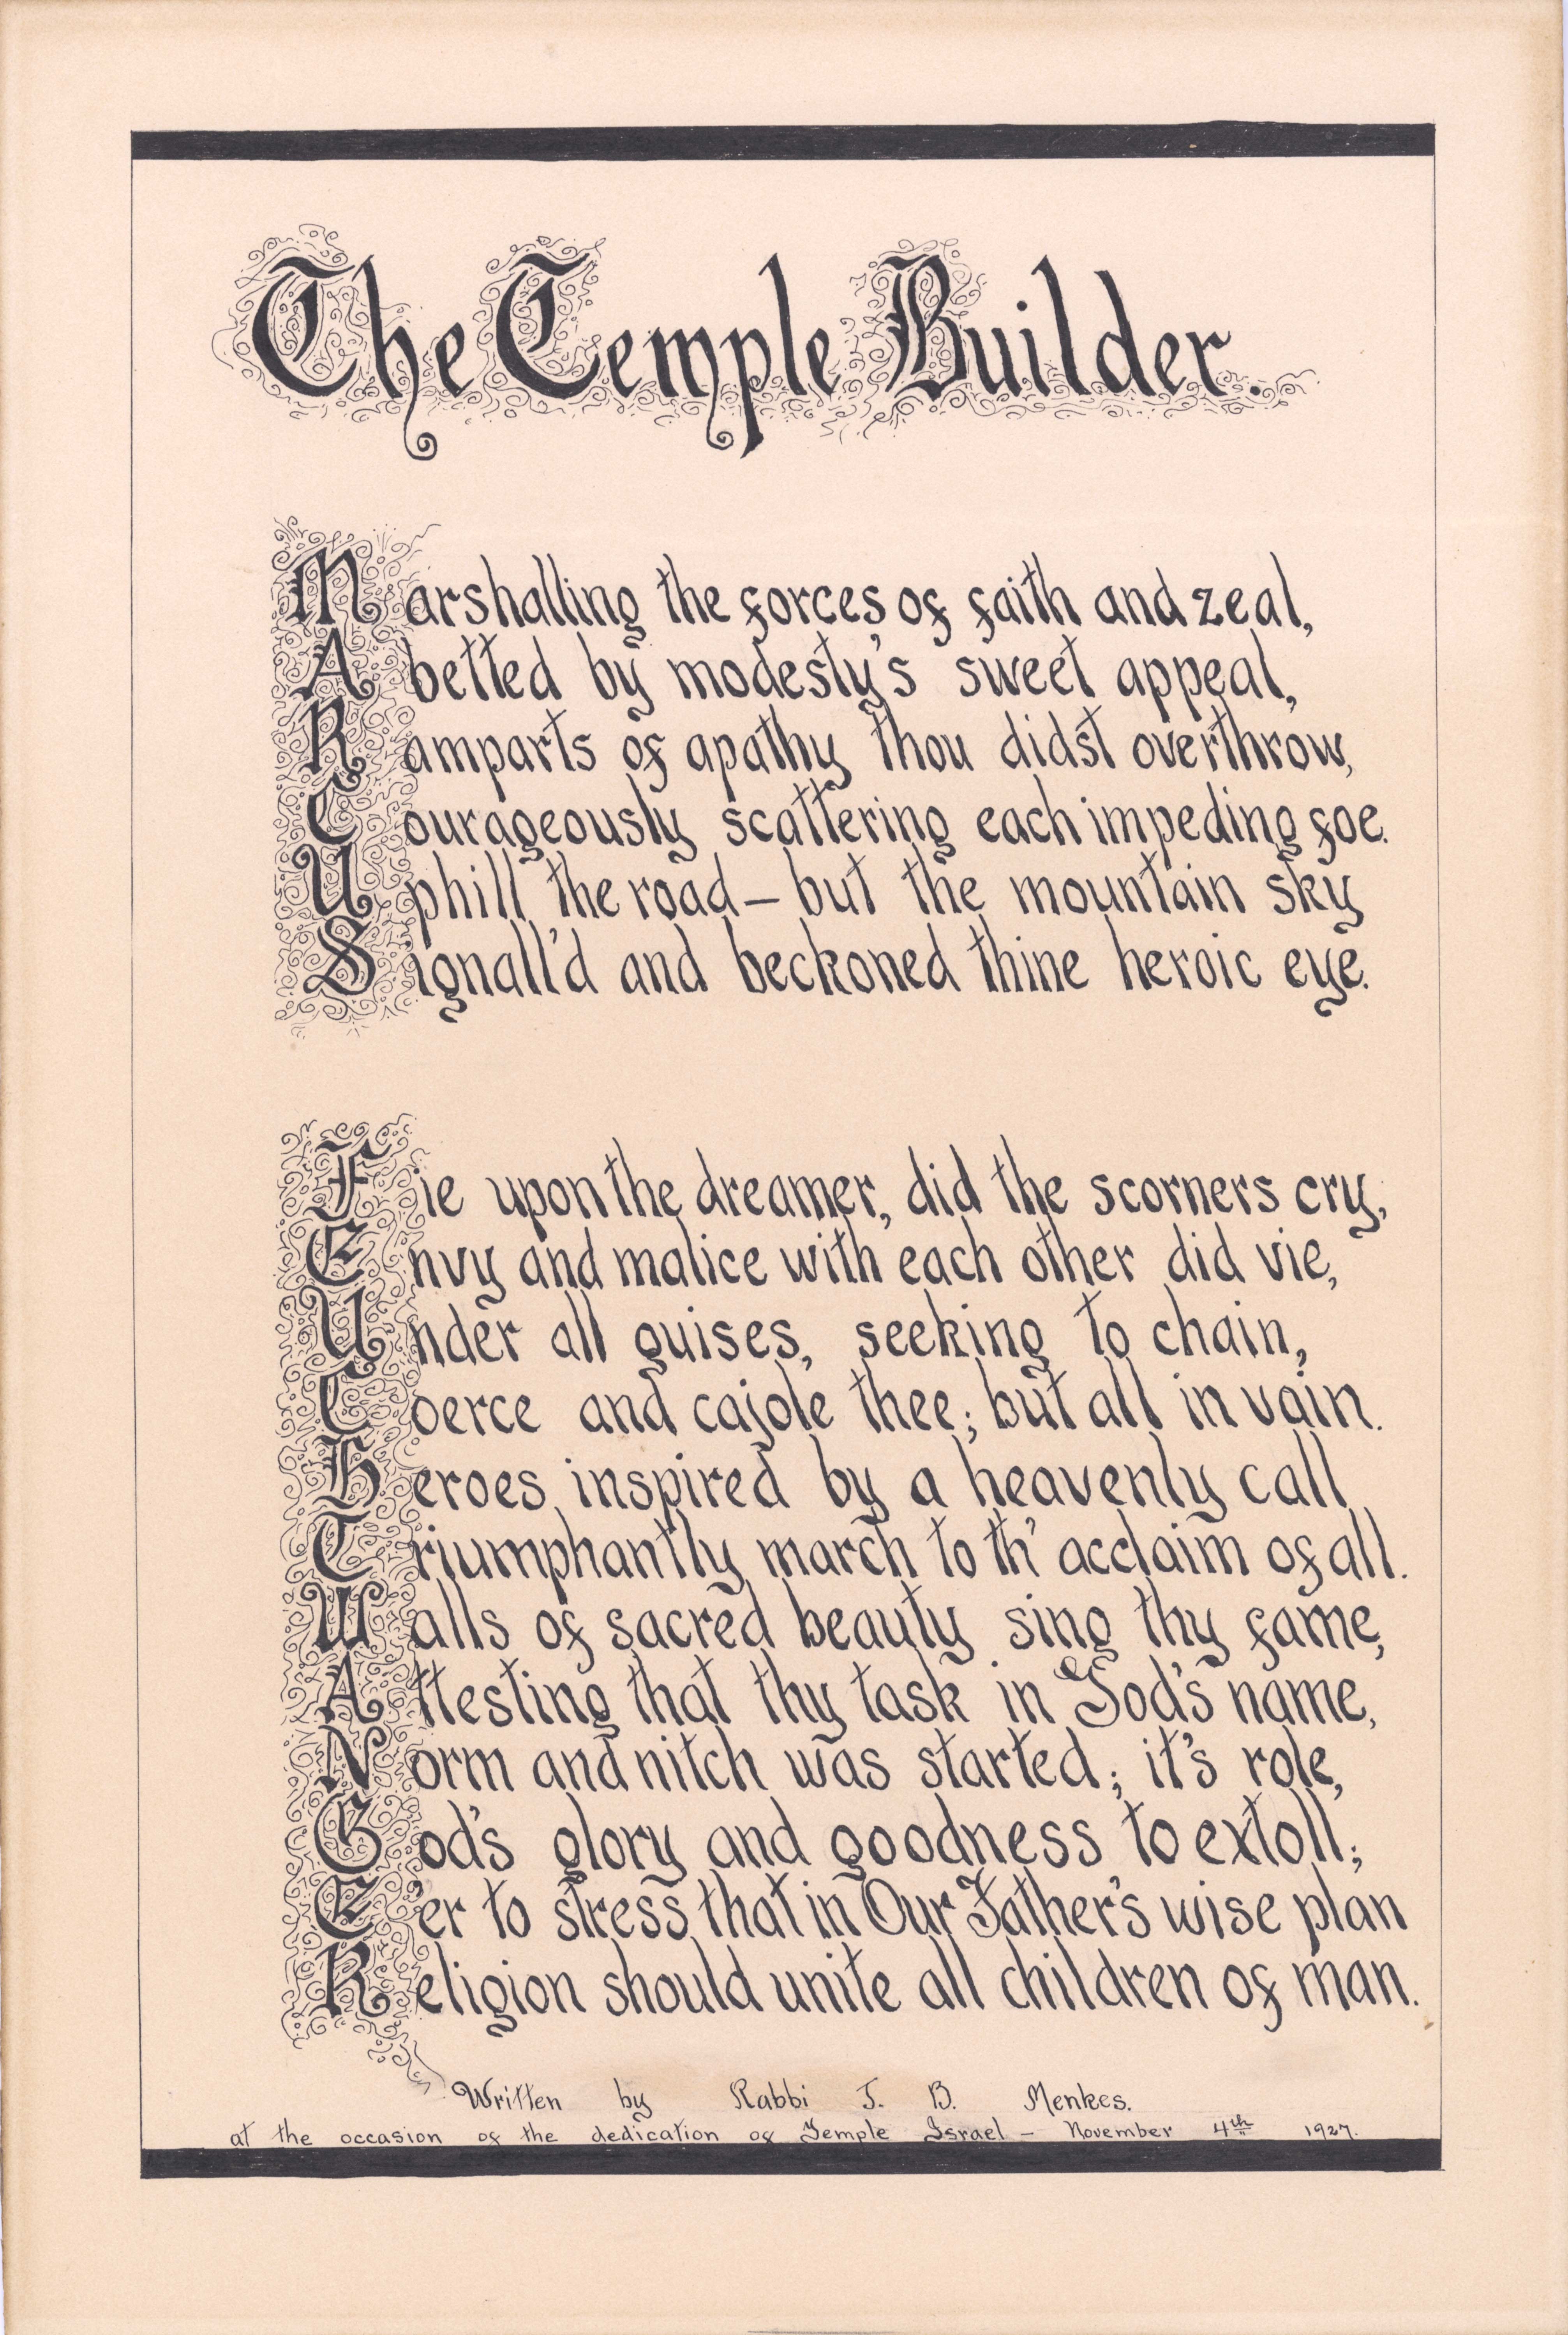 The Temple Builder.
Marshalling the forces of faith and zeal,
Abetted by modesty's sweet appeal,
Ramparts of apathy thou didst overthrow,
Courageously scattering each impeding foe.
Uphill the road — but the mountain sky
Signall'd and beckoned thine heroic eye.
Fie upon the dreamer, did the scorners cry,
Envy and malice with each other did vie,
Under all guises, seeking to chain,
Coerce and cajole thee; but all in vain.
Heroes inspired by a heavenly call
Triumphantly march to th' acclaim of all.
Walls of sacred beauty sing thy fame,
Attesting that thy task in God's name,
Norm and nitch was started; it's role,
God's glory and goodness to extoll;
E'er to stress that in Our Father's wise plan
Religion should unite all children of man.
Written by Rabbi J. B. Menkes.
at the occasion of the dedication of Temple Israel — November 4th 1927.